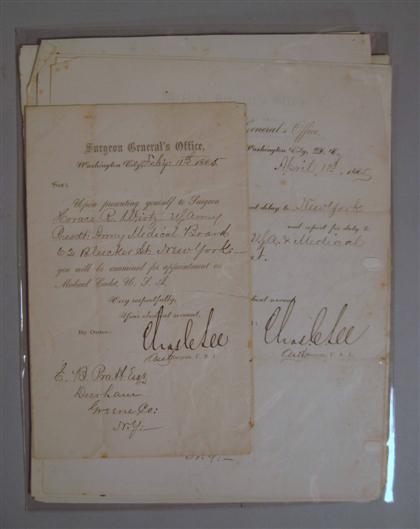 Surgeon General's Office,
Washington City, Feby 11th 1865
Sir:
Upon presenting yourself to Surgeon
Horace R. Wirtz U.S. Army
Presdt Army Medical Board
62 Bleecker St. New York
you will be examined for appointment as
Medical Cadet, U. S. A.
Very respectfully,
Your obedient servant,
By Order:
Chas C Lee
U. S. A.
E. B. Pratt Esq
Durham
Greene Co:
N.Y.
General's Office,
Washington City, D. C.,
April 1865
delay to New York
and report for duty to
U.S.A. & Medical
Chas C Lee
U. S. A.
N.Y.